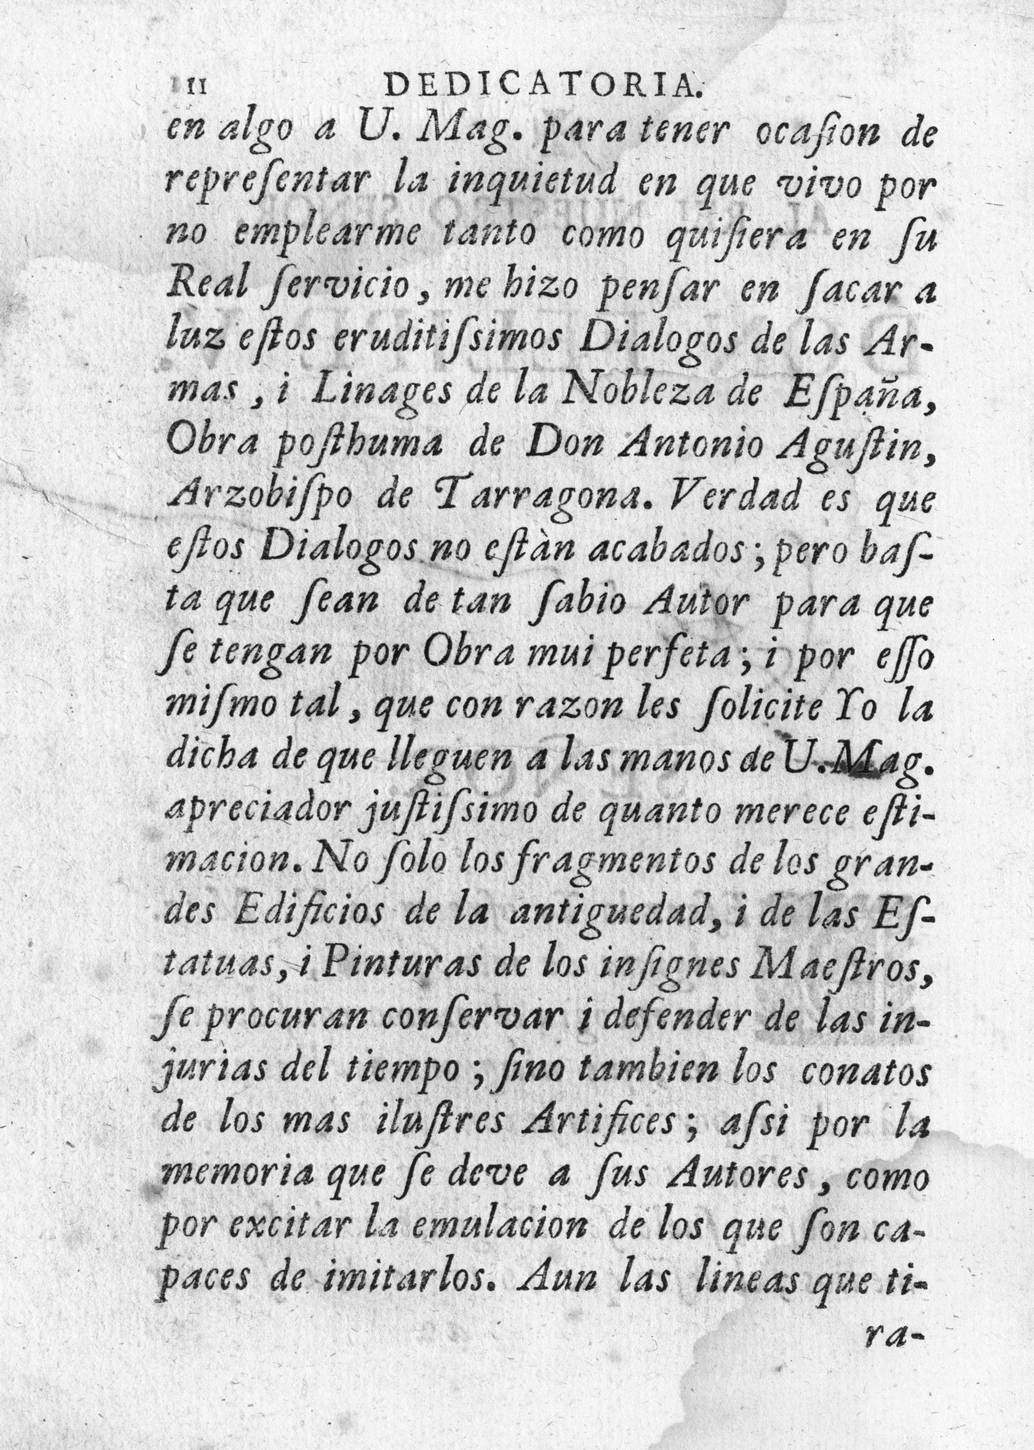 II DEDICATORIA.
en algo a U. Mag. para tener ocaſion de
repreſentar la inquietud en que vivo por
no emplearme tanto como quiſiera en ſu
Real ſervicio, me hizo penſar en ſacar a
luz eſtos eruditiſsimos Dialogos de las Ar-
mas, i Linages de la Nobleza de Eſpaña,
Obra poſthuma de Don Antonio Aguſtin,
Arzobiſpo de Tarragona. Verdad es que
eſtos Dialogos no eſtàn acabados; pero baſ-
ta que ſean de tan ſabio Autor para que
ſe tengan por Obra mui perfeta; i por eſſo
miſmo tal, que con razon les ſolicite Yo la
dicha de que lleguen a las manos de U. Mag.
apreciador juſtiſsimo de quanto merece eſti-
macion. No ſolo los fragmentos de los gran-
des Edificios de la antiguedad, i de las Eſ-
tatuas, i Pinturas de los inſignes Maeſtros,
ſe procuran conſervar i defender de las in-
jurias del tiempo; ſino tambien los conatos
de los mas iluſtres Artifices; aſsi por la
memoria que ſe deve a ſus Autores, como
por excitar la emulacion de los que ſon ca-
paces de imitarlos. Aun las lineas que ti-
ra-